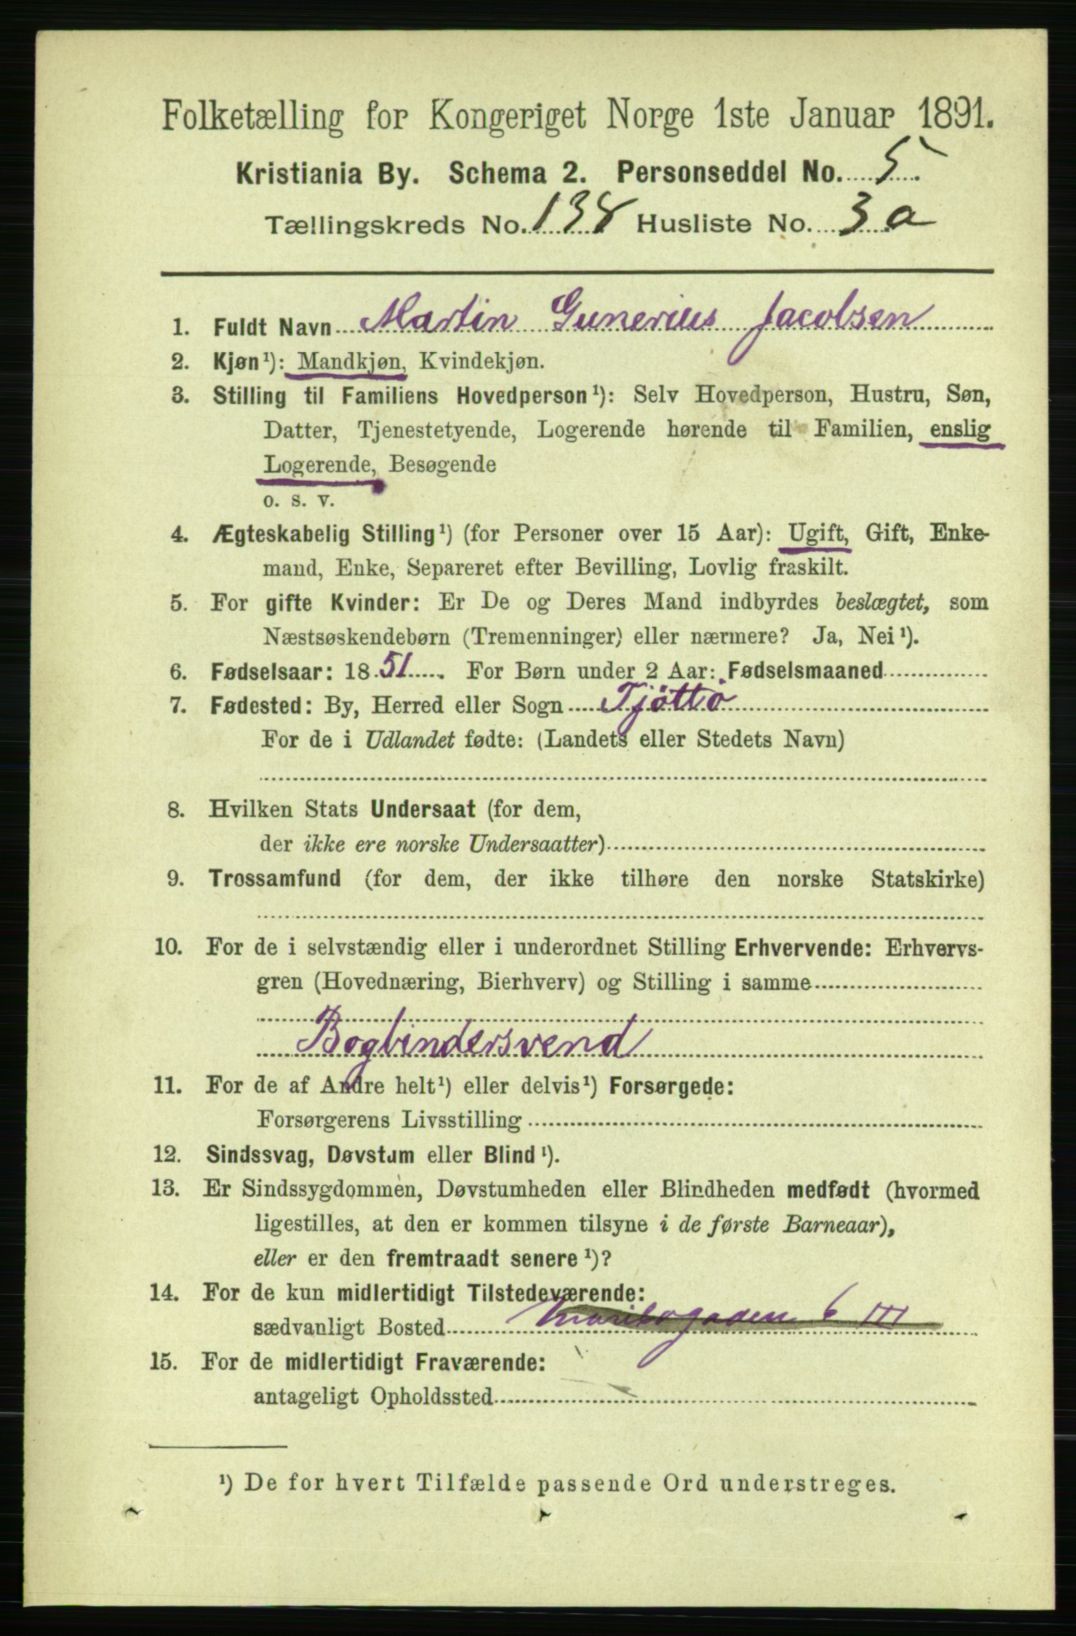 Folketælling for Kongeriget Norge 1ste Januar 1891.
Kristiania By. Schema 2. Personseddel No. 5
Tællingskreds No. 138 Husliste No. 3 a
1. Fuldt Navn Martin Gunerius Jacobsen
2. Kjøn¹): Mandkjøn, Kvindekjøn.
3. Stilling til Familiens Hovedperson¹): Selv Hovedperson, Hustru, Søn,
Datter, Tjenestetyende, Logerende hørende til Familien, enslig
Logerende, Besøgende
o. s. v.
4. Ægteskabelig Stilling¹) (for Personer over 15 Aar): Ugift, Gift, Enke-
mand, Enke, Separeret efter Bevilling, Lovlig fraskilt.
5. For gifte Kvinder: Er De og Deres Mand indbyrdes beslægtet, som
Næstsøskendebørn (Tremenninger) eller nærmere? Ja, Nei¹).
6. Fødselsaar: 1851. For Børn under 2 Aar: Fødselsmaaned
7. Fødested: By, Herred eller Sogn Tjöttö
For de i Udlandet fødte: (Landets eller Stedets Navn)
8. Hvilken Stats Undersaat (for dem,
der ikke ere norske Undersaatter)
9. Trossamfund (for dem, der ikke tilhøre den norske Statskirke)
10. For de i selvstændig eller i underordnet Stilling Erhvervende: Erhvervs-
gren (Hovednæring, Bierhverv) og Stilling i samme
Bogbindersvend
11. For de af Andre helt¹) eller delvis¹) Forsørgede:
Forsørgerens Livsstilling
12. Sindssvag, Døvstum eller Blind¹).
13. Er Sindssygdommen, Døvstumheden eller Blindheden medfødt (hvormed
ligestilles, at den er kommen tilsyne i de første Barneaar),
eller er den fremtraadt senere¹)?
14. For de kun midlertidigt Tilstedeværende:
sædvanligt Bosted Maribogaden 6 III
15. For de midlertidigt Fraværende:
antageligt Opholdssted
¹) De for hvert Tilfælde passende Ord understreges.